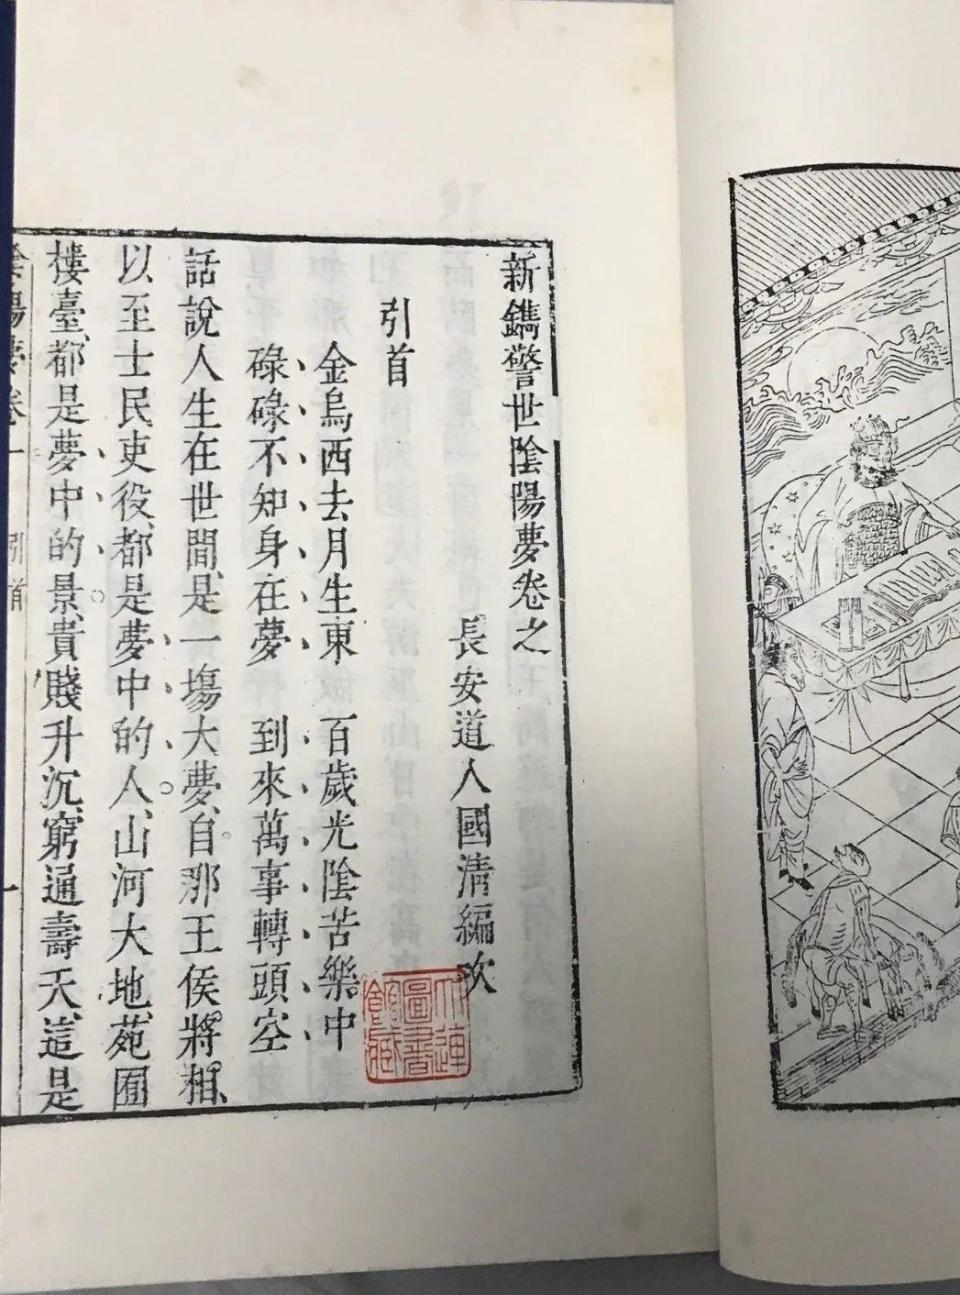 新鐫警世陰陽夢卷之一
長安道人國清編次
引首
金烏西去月生東　百歲光陰苦樂中
碌碌不知身在夢　到來萬事轉頭空
話說人生在世間、是一塲大夢、自那王侯將相、
以至士民吏役、都是夢中的人、山河大地、苑囿
樓臺、都是夢中的景、貴賤升沉、窮通壽夭、這是
陰陽夢卷一　引首　一
大連圖書館藏